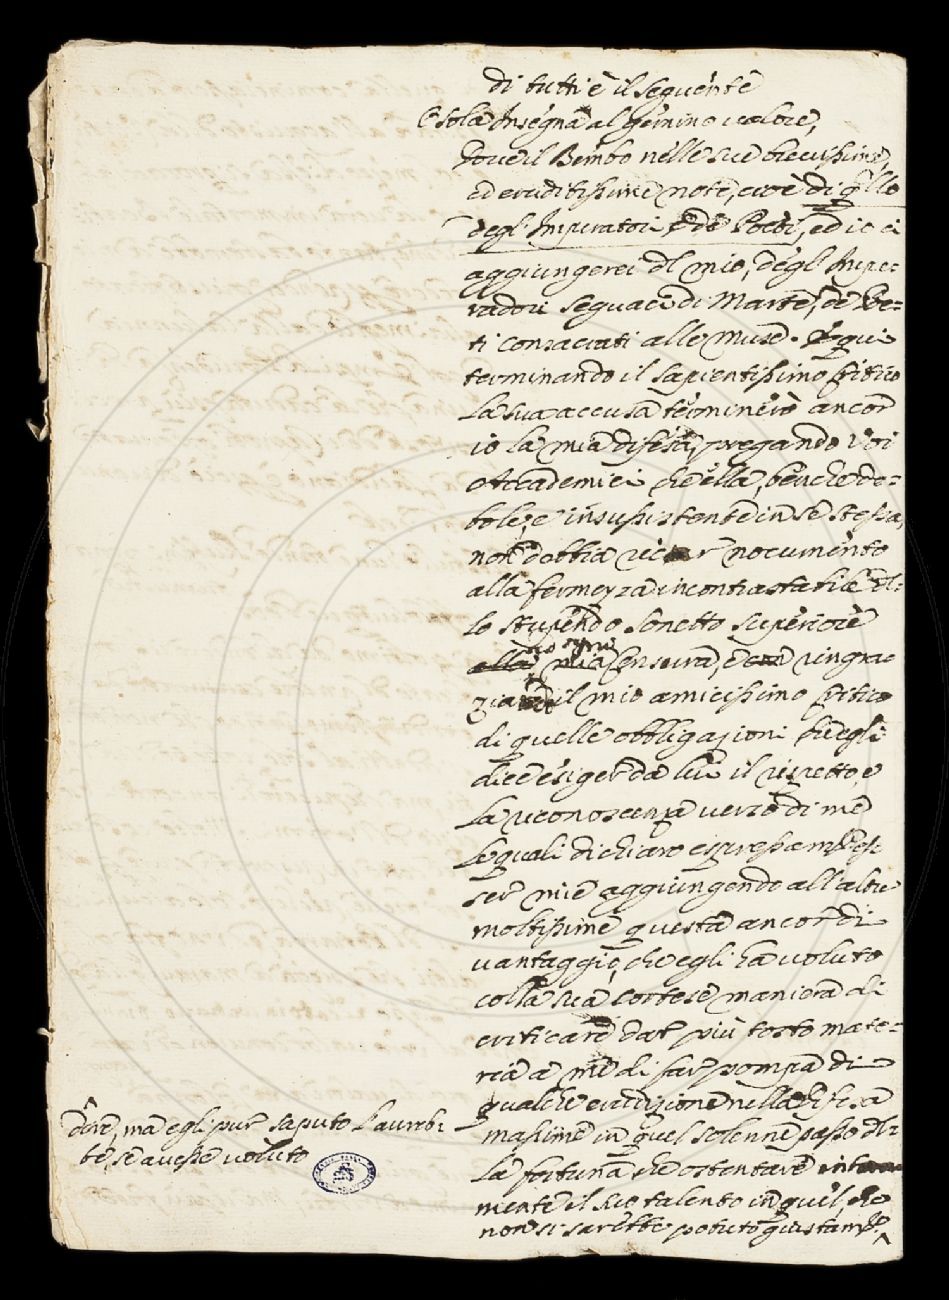 di tutti è il seguente
E sola Insegna al gemino valore,
dove il Bembo nelle sue brevissime,
ed eruditissime note, cioè di q.llo
degl'Imperatori e de Poeti, ed io ci
aggiungerei dl mio, degl'Impe-
radori seguaci di Marte, de Poe-
ti consacrati alle muse. E qui
terminando il sapientissimo Critico
la sua accusa terminerò ancor
io la mia difesa, pregando Voi
Accademici che ella, benche de-
bole, e insussistente in se stessa,
non debbia recar nocumento
alla fermezza incontrastabile del-
lo stupendo sonetto superiore
mia censura, e ringra-
zia il mio amicissimo Critico
di quelle obbligazioni ch'egli
dice esiger da lui il rispetto, e
la riconoscenza verso di me
le quali dichiaro espressam.te es-
ser mie aggiungendo all'altre
moltissime questa ancor di
vantaggio, che egli ha voluto
colla sua cortese maniera di
criticare dar più tosto mate-
ria a me di far pompa di
qualche erudizione nella difesa
massime in quel solenne passo del-
la fortuna che ostentare
mente il suo talento in quel, che
non si sarebbe potuto giustam.te
dire, ma egli pur saputo l'avreb-
be, se avesse voluto